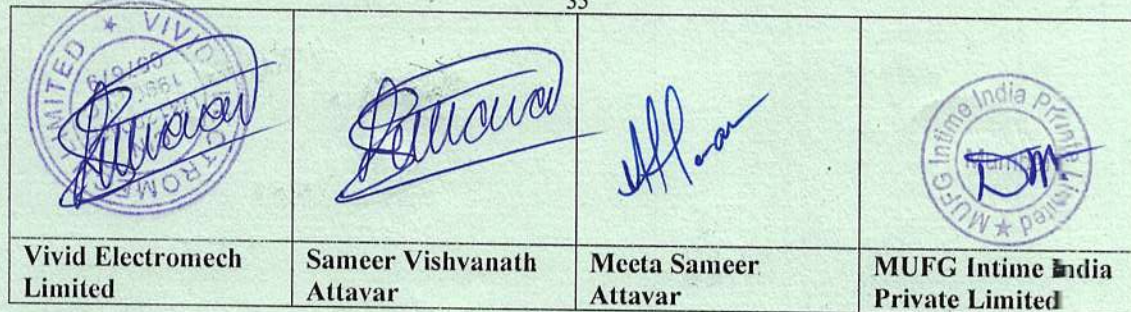 35
VIVID ELECTROMECH LIMITED
MUFG Intime India Private Limited
Mumbai
Vivid Electromech
Limited
Sameer Vishvanath
Attavar
Meeta Sameer
Attavar
MUFG Intime India
Private Limited